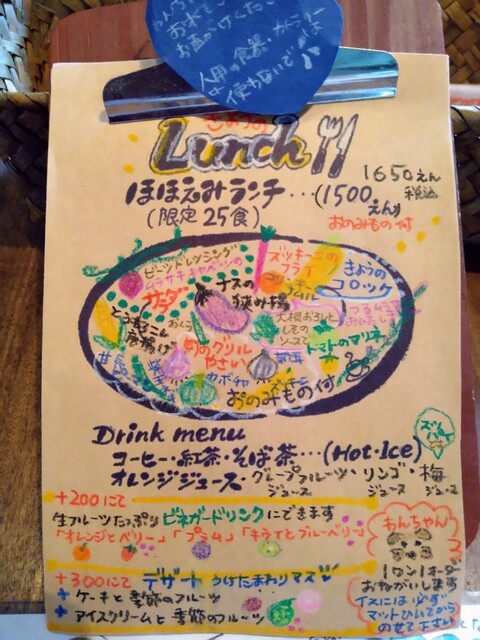 お水で
人用の食器
使わないで
きょうの
Lunch
1650えん
税込
ほほえみランチ…(1500えん)
(限定25食)
おのみもの付
ビーツドレッシング
ムラサキキャベツの
サラダ
ズッキーニの
フライ
きょうの
コロッケ
ナスの
挟み揚
とうもろこし
唐揚げ
おくら
大根おろしと
しその
ソースで
トマトのマリネ
旬のグリル
やさい
カボチャ
おのみもの付
Drink menu
コーヒー・紅茶・そば茶…(Hot・Ice)
オレンジジュース・グレープフルーツジュース・リンゴジュース・梅ジュース
+200にて
生フルーツたっぷりビネガードリンクにできます
「オレンジとベリー」「プラム」「キウイとブルーベリー」
+300にて デザートうけたまわりマス
+ ケーキと季節のフルーツ
+ アイスクリームと季節のフルーツ
わんちゃん
1ワン1オーダー
おねがいします
イスには必ず
マットひいてから
のせて下さい